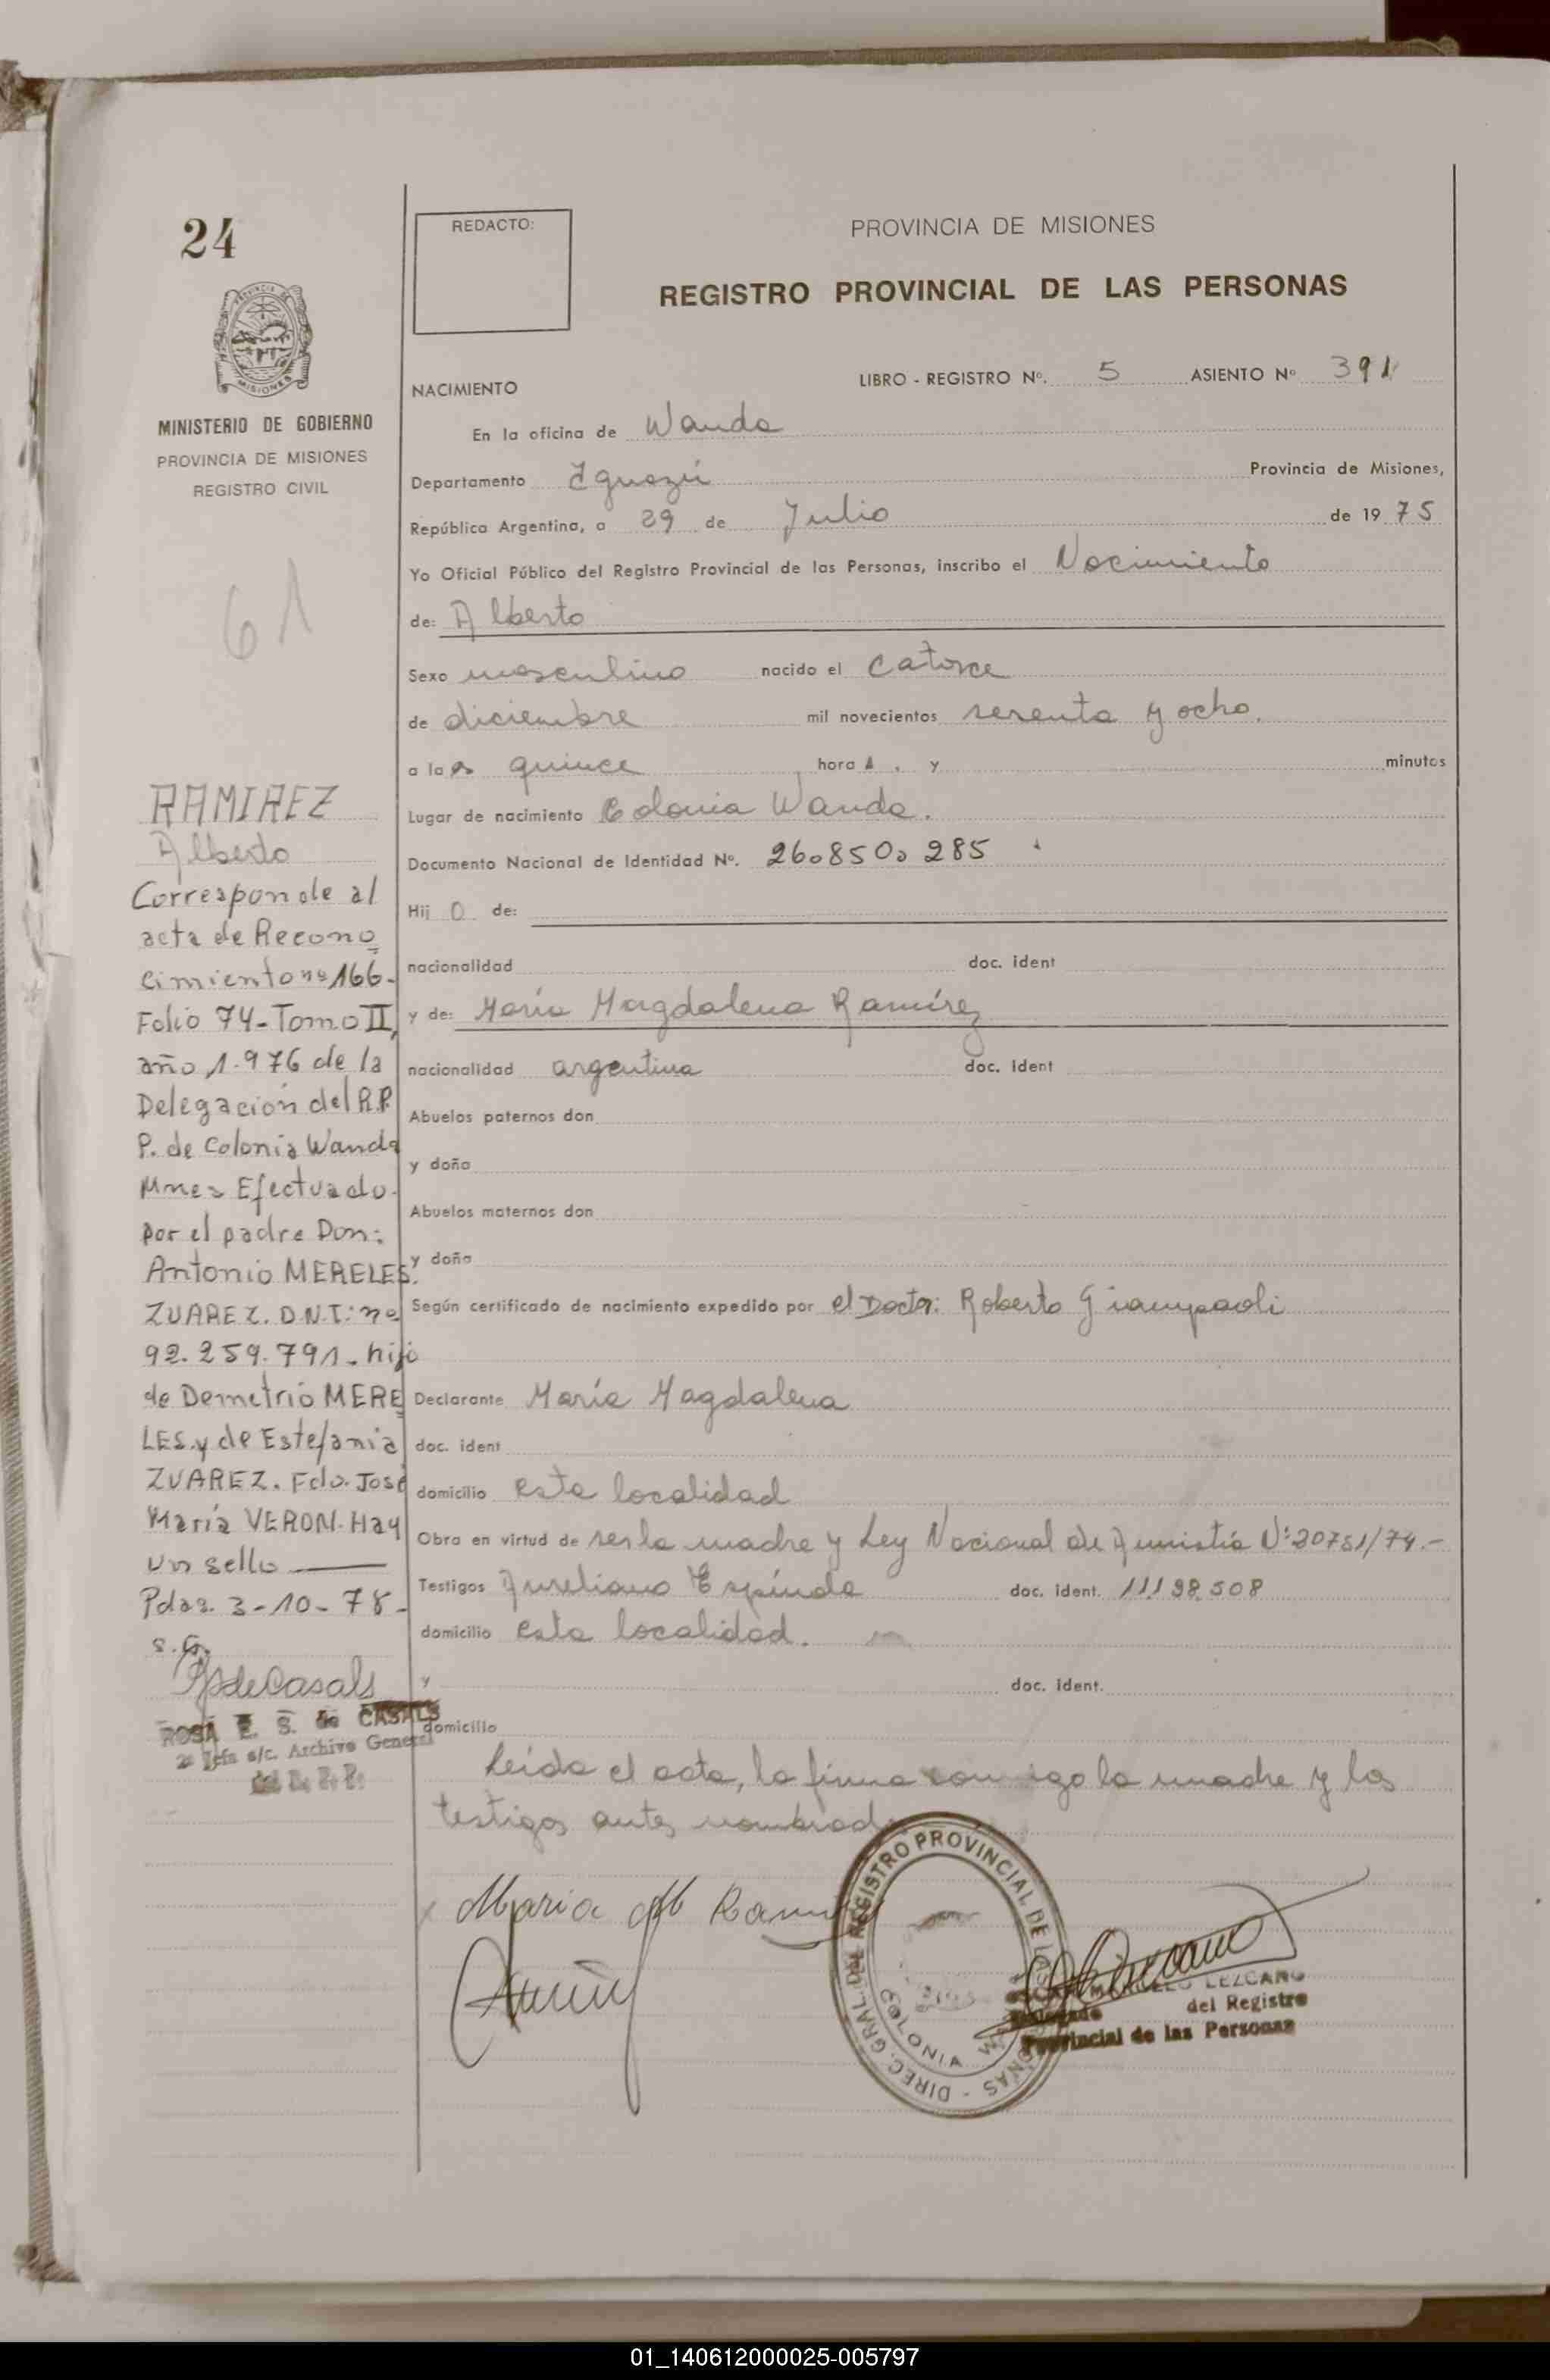 24
REDACTO:
PROVINCIA DE MISIONES
REGISTRO PROVINCIAL DE LAS PERSONAS
PROVINCIA DE
MISIONES
MINISTERIO DE GOBIERNO
PROVINCIA DE MISIONES
REGISTRO CIVIL
61
RAMIREZ
Alberto
Corresponde al
acta de Recono
cimiento nº 166-
Folio 74-Tomo II,
año 1.976 de la
Delegación del R.P.
P. de Colonia Wanda
Mnes Efectuado
por el padre Don:
Antonio MERELES.
ZUAREZ. D.N.I: nº
92.259.791. hijo
de Demetrio MERE
LES. y de Estefania
ZUAREZ. Fdo. José
María VERON. Hay
un sello
Pdas. 3-10-78-
s.G.
ROSA E. S. de CASALS
2ª Jefa a/c. Archivo General
del R. P. P.
NACIMIENTO
LIBRO - REGISTRO Nº. 5 ASIENTO Nº 391
En la oficina de Wanda
Departamento Iguazú Provincia de Misiones,
República Argentina, a 29 de Julio de 1975
Yo Oficial Público del Registro Provincial de las Personas, inscribo el Nacimiento
de: Alberto
Sexo masculino nacido el catorce
de diciembre mil novecientos sesenta y ocho.
a las quince hora , y minutos
Lugar de nacimiento Colonia Wanda.
Documento Nacional de Identidad Nº. 26.850.285
Hijo de:
nacionalidad doc. ident
y de: María Magdalena Ramírez
nacionalidad argentina doc. ident
Abuelos paternos don
y doña
Abuelos maternos don
y doña
Según certificado de nacimiento expedido por el Doctor: Roberto Giampaoli
Declarante María Magdalena
doc. ident
domicilio esta localidad
Obra en virtud de ser la madre y Ley Nacional de Amnistía Nº 20751/74.-
Testigos Aureliano Espínda doc. ident. 11198.508
domicilio esta localidad.
y doc. ident.
domicilio
Leída el acta, la firma conmigo la madre y los
testigos antes nombrad
Maria M Ramirez
DIREC. GRAL. DEL REGISTRO PROVINCIAL DE LAS PERSONAS -
COLONIA
LEZCANO
Delegado del Registro
Provincial de las Personas
01_140612000025-005797